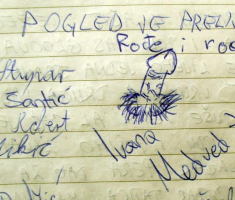 POGLED JE PRELI
Rože i ro
Stupar
Santić
Robert
Mikić
Ivana
Medved